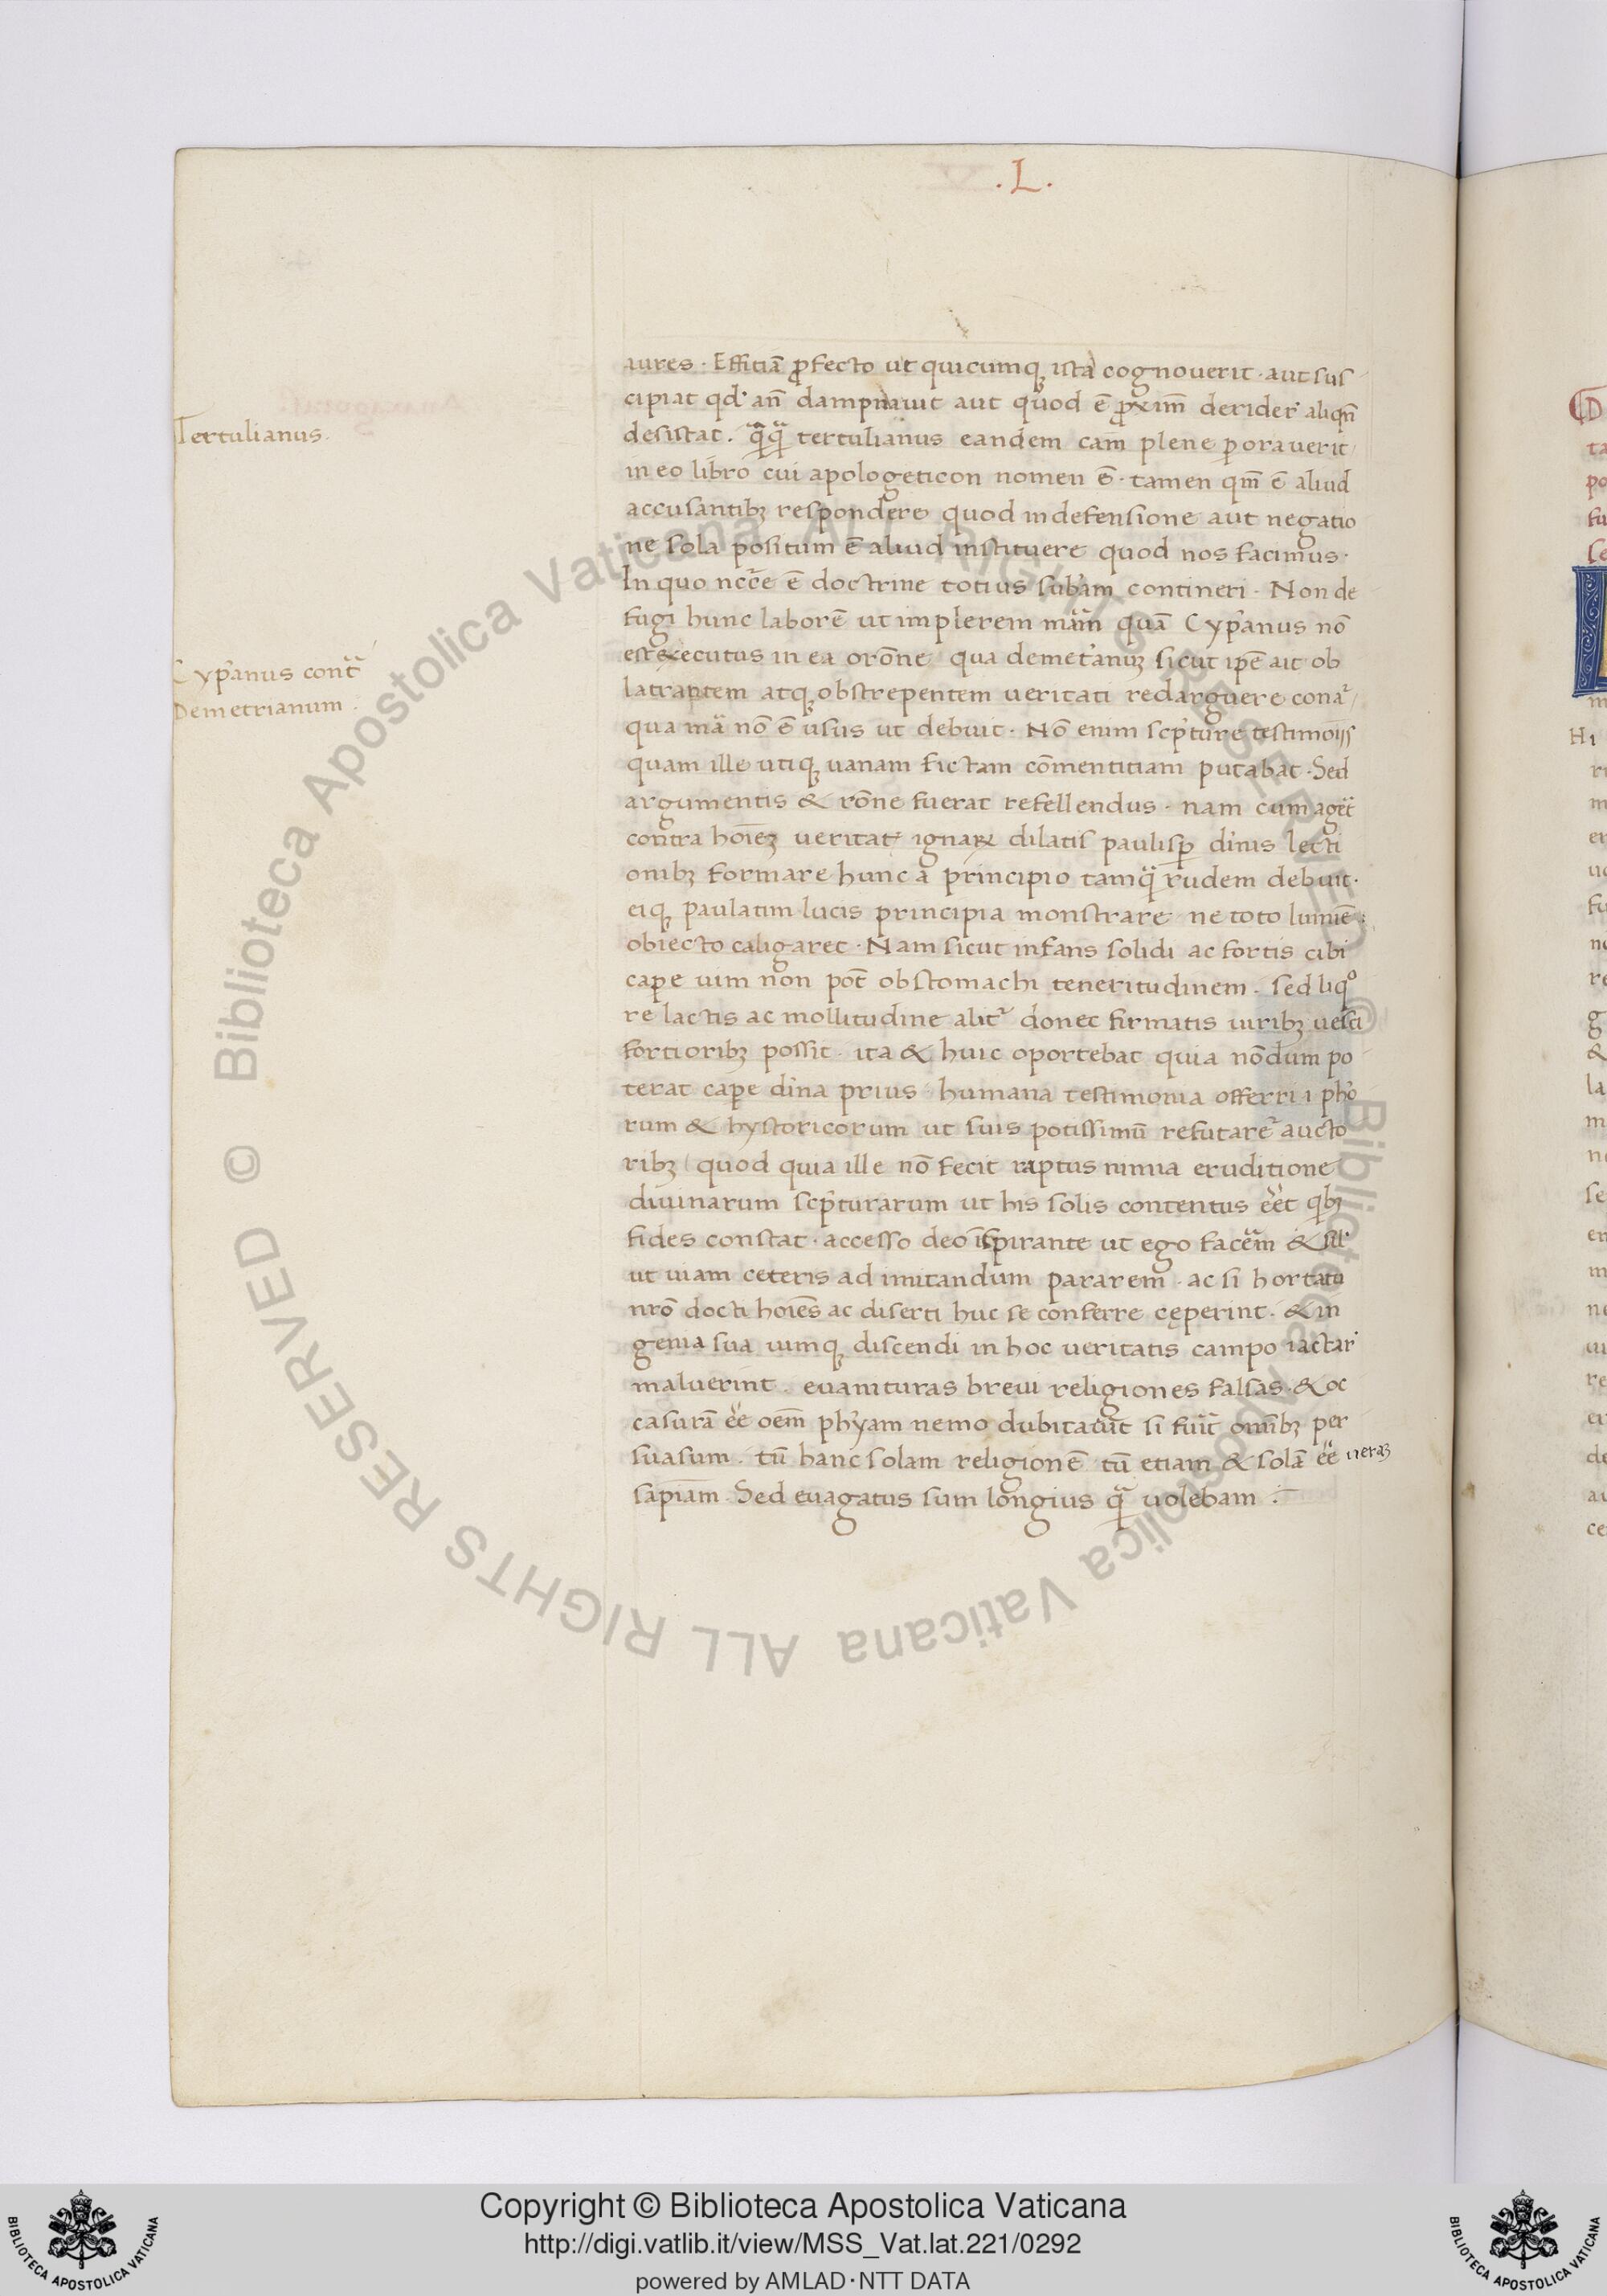 .L.
aures · Effitiā ꝓfecto ut quicumqꝫ ista cognouerit · aut sus
cipiat qd' an̄ dampnauit aut quod ē ꝓxim̄ derider' aliqn̄
Tertulianus.
desistat. q̄q̄ tertulianus eandem cām plene ꝑorauerit
in eo libro cui apologeticon nomen ē · tamen qm̄ ē aliud
accusantibꝫ respondere quod in defensione aut negatio
ne sola positum ē aliud instituere quod nos facimus ·
In quo ncc̄e ē doctrine totius subam contineri · Non de
fugi hunc laborē ut implerem mām quā Cyp'anus nō
Cyp'anus cont̄
Demetrianum.
est executus in ea orōne qua demet'anuꝫ sicut ip̄e ait ob
latrantem atqꝫ obstrepentem ueritati redarguere cona
qua mā nō ē usus ut debuit · Nō enim scp'ture testimoījs
quam ille utiqꝫ uanam fictam cōmentitiam putabat · Sed
argumentis & rōne fuerat refellendus · nam cum aget
contra hoīeꝫ ueritat ignaꝝ dilatis paulisꝑ d'inis lecti
onibꝫ formare hunc a principio tamq̄ rudem debuit ·
eiqꝫ paulatim lucis principia monstrare ne toto lumīe
obiecto caligaret · Nam sicut infans solidi ac fortis cibi
caꝑe uim non pōt ob stomachi teneritudinem · sed liqo
re lactis ac mollitudine alit' donec firmatis uiribꝫ uesci
fortioribꝫ possit · ita & huic oportebat quia nōdum po
terat caꝑe d'ina prius humana testimonia offerri i pho
rum & hystoricorum ut suis potissimū refutare' aucto
ribꝫ quod quia ille nō fecit raptus nimia eruditione
diuinarum scp'turarum ut his solis contentus eet qbꝫ
fides constat · accesso deo īspirante ut ego facem & sil'
ut uiam ceteris ad imitandum pararem · ac si hortatu
nr̄o docti hoīes ac diserti huc se conferre cęperint · & in
genia sua uimqꝫ discendi in hoc ueritatis campo iactar'
maluerint · euanituras breui religiones falsas · & oc
casurā ee oēm phyam nemo dubitauit si fuit omībꝫ per
suasum · tū hanc solam religionē tū etiam & solā ee ueraꝫ
sapiam · Sed euagatus sum longius q̄ uolebam ·
Copyright © Biblioteca Apostolica Vaticana
http://digi.vatlib.it/view/MSS_Vat.lat.221/0292
powered by AMLAD·NTT DATA
BIBLIOTECA APOSTOLICA VATICANA
BIBLIOTECA APOSTOLICA VATICANA
© Biblioteca Apostolica Vaticana ALL RIGHTS RESERVED
© Biblioteca Apostolica Vaticana ALL RIGHTS RESERVED